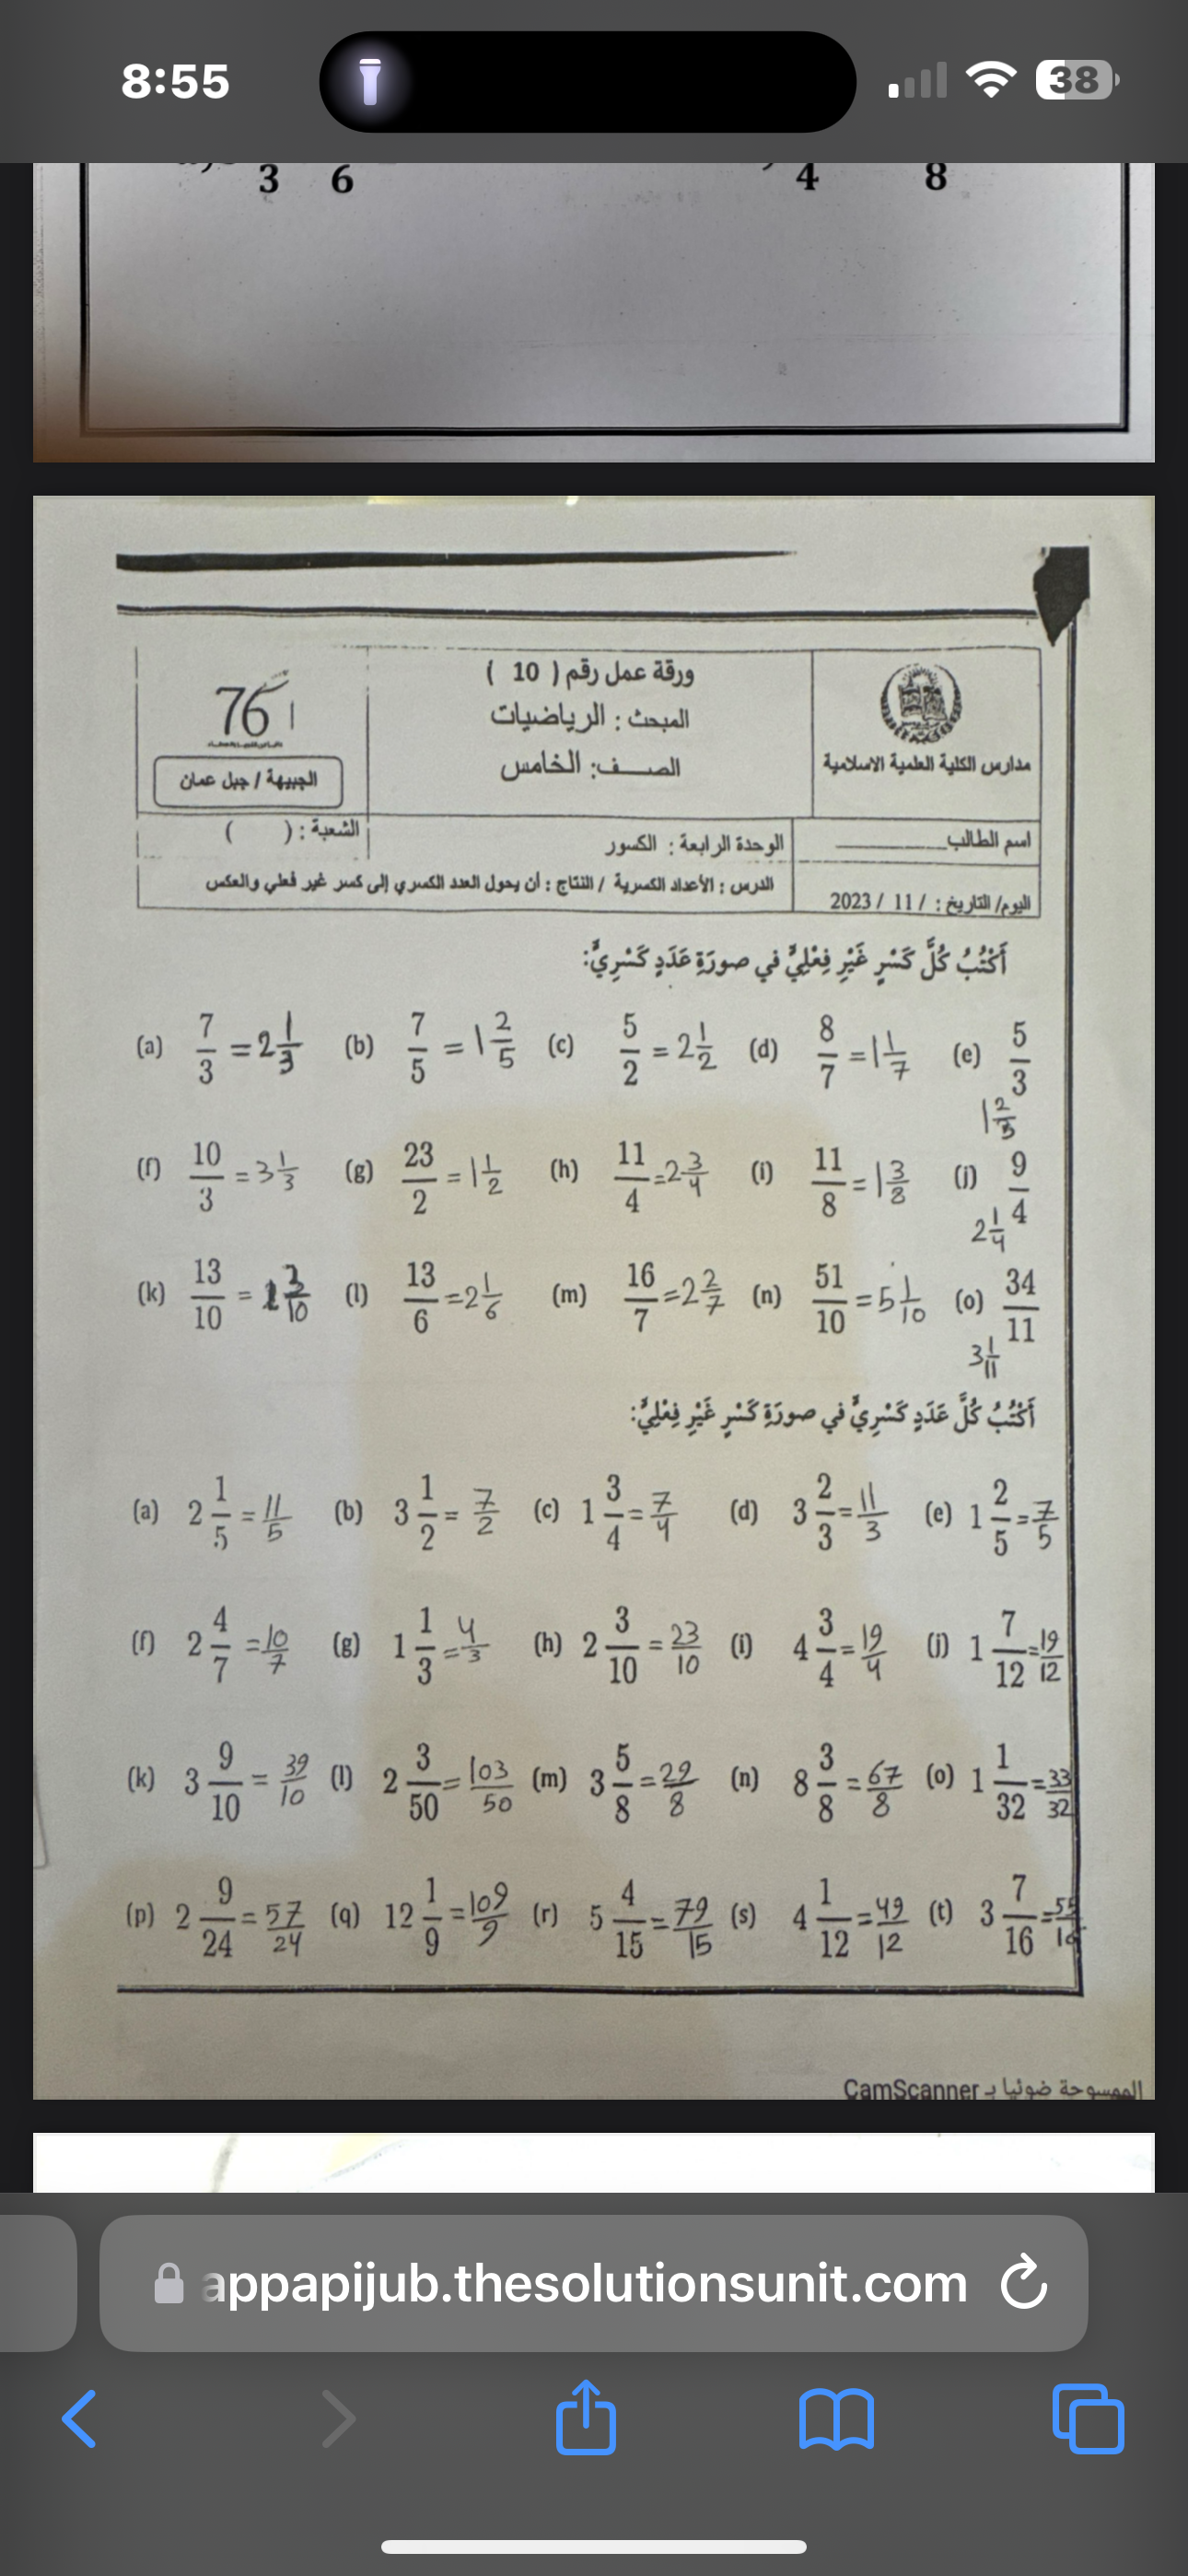 8:55
38
3 6 4 8
76
الجبيهة / جبل عمان
ورقة عمل رقم ( 10 )
المبحث : الرياضيات
الصـــف: الخامس
مدارس الكلية العلمية الاسلامية
اسم الطالب__________
الوحدة الرابعة : الكسور
الشعبة : ( )
اليوم/ التاريخ : / 11 / 2023
الدرس : الأعداد الكسرية / النتاج : أن يحول العدد الكسري إلى كسر غير فعلي والعكس
أَكْتُبُ كُلَّ كَسْرٍ غَيْرِ فِعْلِيٍّ في صورَةِ عَدَدٍ كَسْرِيٍّ:
(a) 7/3 = 2 1/3 (b) 7/5 = 1 2/5 (c) 5/2 = 2 1/2 (d) 8/7 = 1 1/7 (e) 5/3
1 2/3
(f) 10/3 = 3 1/3 (g) 23/2 = 1 1/2 (h) 11/4 = 2 3/4 (i) 11/8 = 1 3/8 (j) 9/4
2 1/4
(k) 13/10 = (l) 13/6 = 2 1/6 (m) 16/7 = 2 2/7 (n) 51/10 = 5 1/10 (o) 34/11
3 1/11
أَكْتُبُ كُلَّ عَدَدٍ كَسْرِيٍّ في صورَةِ كَسْرٍ غَيْرِ فِعْلِيٍّ:
(a) 2 1/5 = 11/5 (b) 3 1/2 = 7/2 (c) 1 3/4 = 7/4 (d) 3 2/3 = 11/3 (e) 1 2/5 = 7/5
(f) 2 4/7 = 10/7 (g) 1 1/3 = 4/3 (h) 2 3/10 = 23/10 (i) 4 3/4 = 19/4 (j) 1 7/12 = 19/12
(k) 3 9/10 = 39/10 (l) 2 3/50 = 103/50 (m) 3 5/8 = 29/8 (n) 8 3/8 = 67/8 (o) 1 1/32 = 33/32
(p) 2 9/24 = 57/24 (q) 12 1/9 = 109/9 (r) 5 4/15 = 79/15 (s) 4 1/12 = 49/12 (t) 3 7/16 = 55/16
الممسوحة ضوئيا بـ CamScanner
appapijub.thesolutionsunit.com